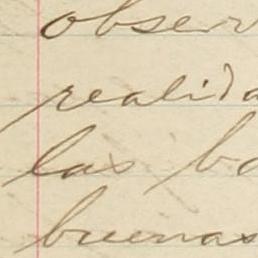 observ
realida
las bo
buenas